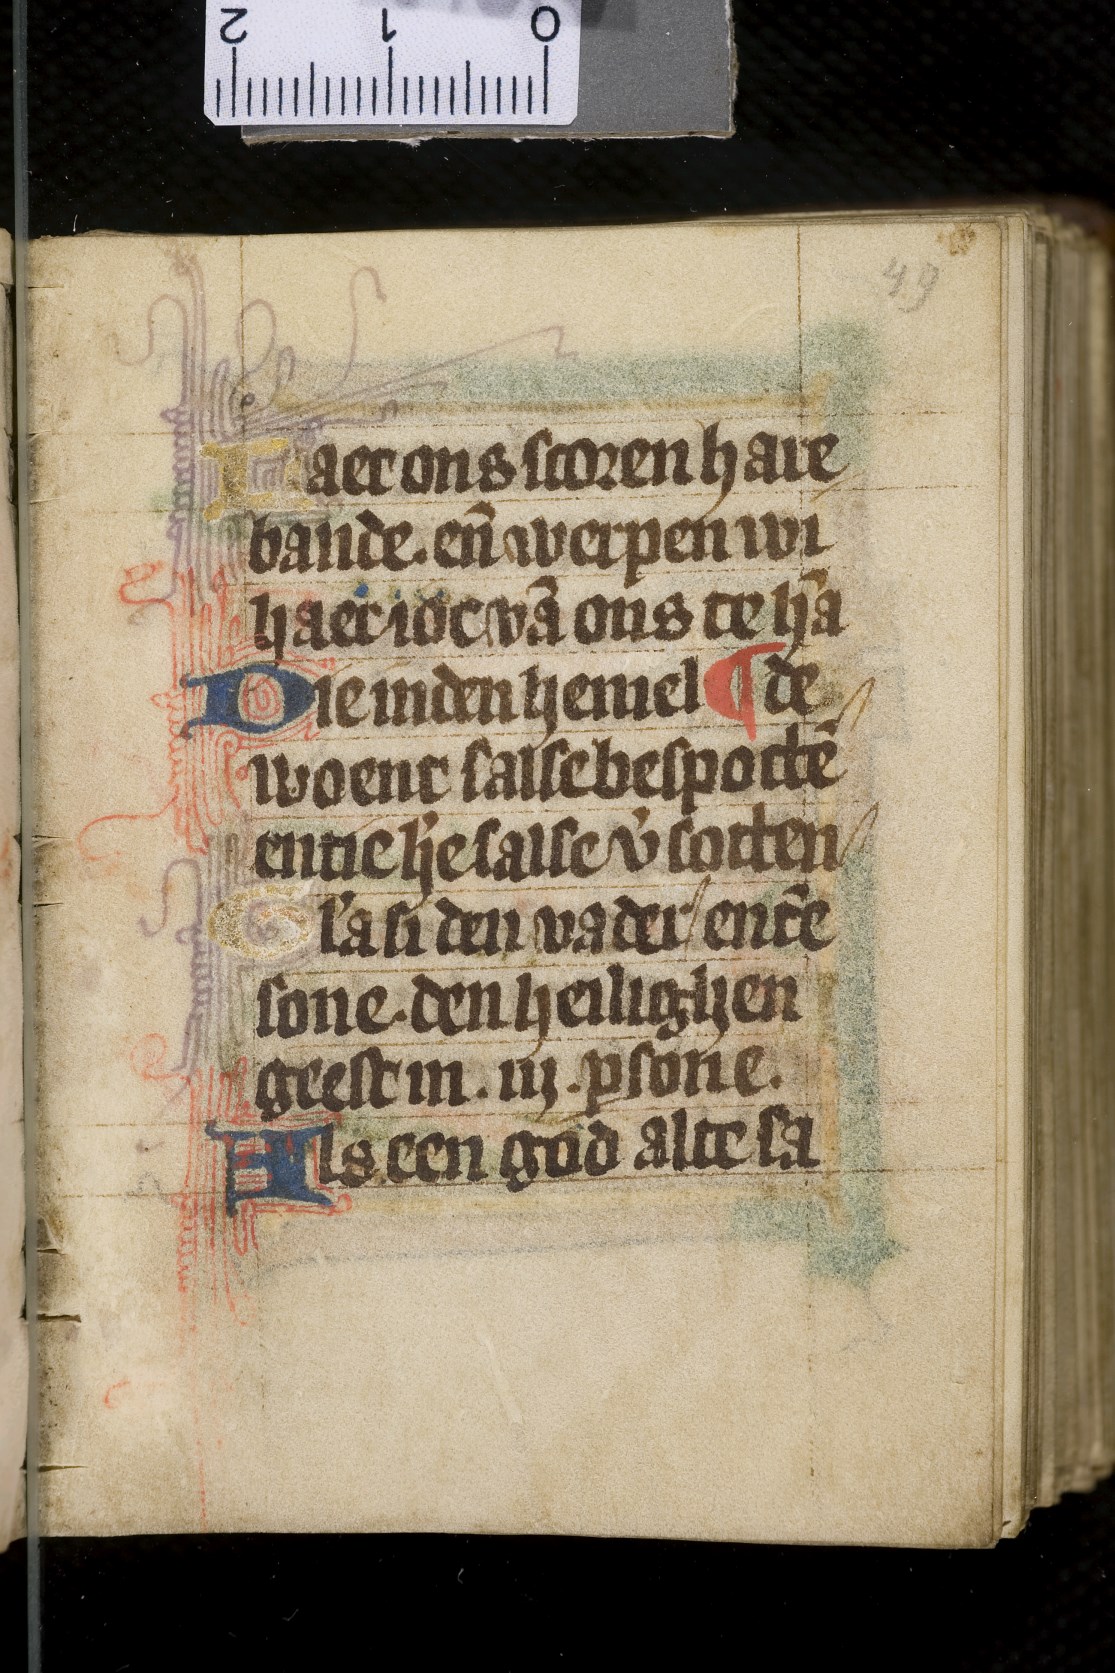 2 1 0
49
Laet ons scoren hare
bande. en̄ werpen wi
haer ioc vā ons te hā
Die inden hemel ¶ de
woent salse bespottē
entie h'e salse v'sotten
Gl'a si den vader entē
sone. den heilighen
geest in. iij. psone.
Als een god altesa